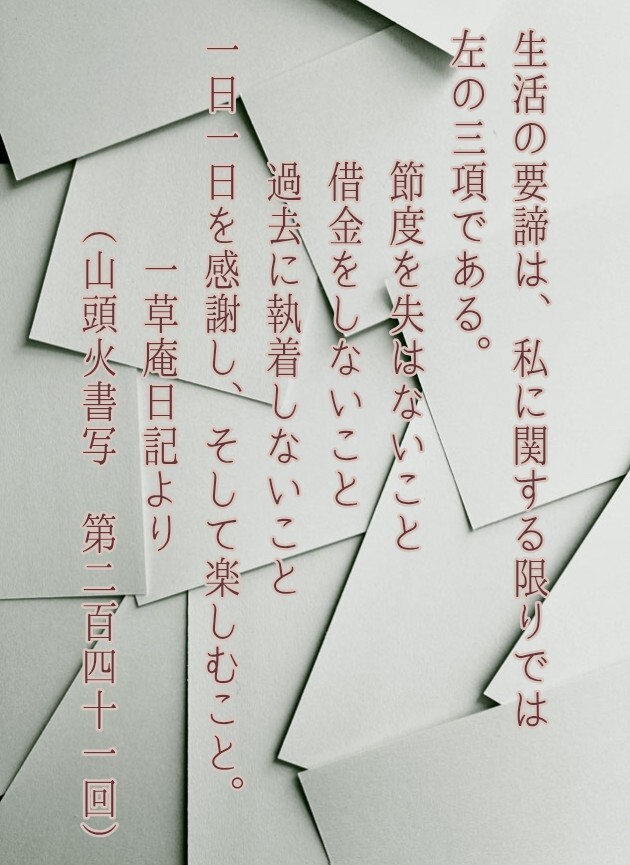 生活の要諦は、私に関する限りでは
左の三項である。
節度を失はないこと
借金をしないこと
過去に執着しないこと
一日一日を感謝し、そして楽しむこと。
一草庵日記より
（山頭火書写　第二百四十一回）